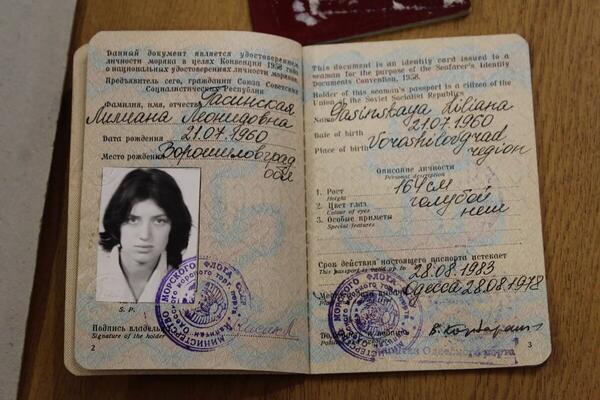 Данный документ является удостоверением
личности моряка в целях Конвенции 1958 года
о национальных удостоверениях личности моряков.
Предъявитель сего, гражданин Союза Советских
Социалистических Республик
Гасинская
Фамилия, имя, отчество
Лилиана Леонидовна
21.07.1960
Дата рождения
Место рождения Ворошиловград
обл
S. P.
Подпись владельца
Signature of the holder
2
This document is an identity card issued to a
seaman for the purpose of the Seafarer's Identity
Documents Convention, 1958.
Holder of this seaman's passport is a citizen of the
Union of the Soviet Socialist Republics
Name Gasinskaya Liliana
21.07.1960
Date of birth
Place of birth Voroshilovgrad
region
Описание личности
Personal description
1. Рост 164 см
Height
2. Цвет глаз голубой
Colour of eyes
3. Особые приметы нет
Special features
Срок действия настоящего паспорта истекает
This passport is valid up to 28.08.1983
Одесса 28.08.1978
МИНИСТЕРСТВО МОРСКОГО ФЛОТА
Капитан Одесского порта
3